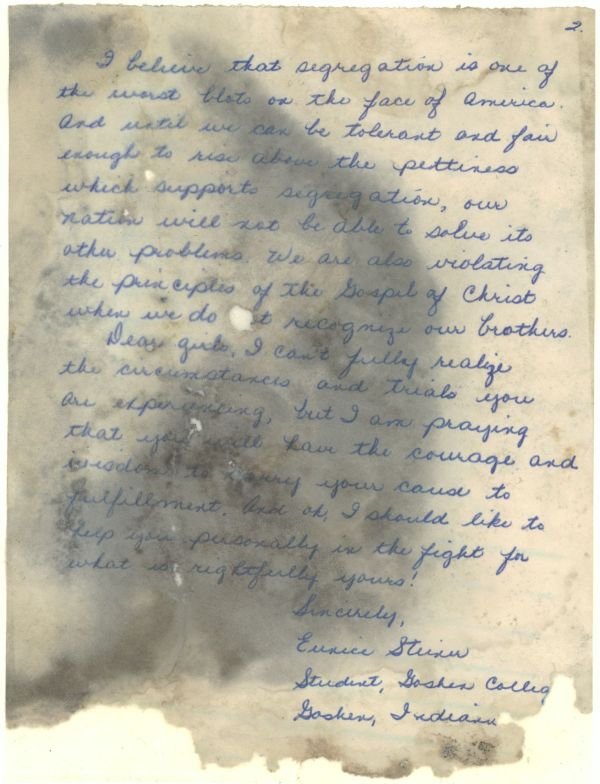 2.
I believe that segregation is one of
the worst blots on the face of America.
And until we can be tolerant and fair
enough to rise above the pettiness
which supports segregation, our
nation will not be able to solve its
other problems. We are also violating
the principles of the Gospel of Christ
when we do t recognize our brothers.
Dear girls, I can't fully realize
the circumstances and trials you
are experiencing, but I am praying
that you will have the courage and
wisdom to carry your cause to
fulfillment. And oh, I should like to
help you personally in the fight for
what is rightfully yours!
Sincerely,
Eunice Steiner
Student, Goshen Colleg
Goshen, Indiana